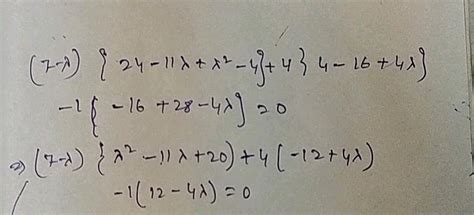 (7-λ) { 24-11λ+λ²-4}+4} 4-16+4λ}
-1{ -16+28-4λ} =0
⇒) (7-λ) {λ²-11λ+20)+4(-12+4λ)
-1(12-4λ)=0